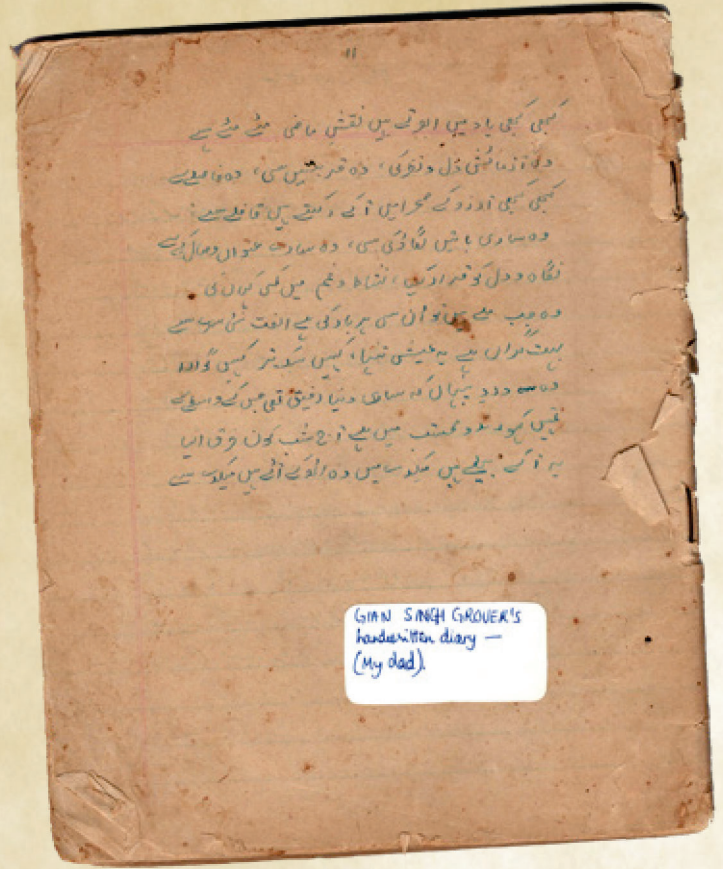 ۱۱
کبھی کبھی یاد میں ابھرتے ہیں نقشِ ماضی مٹے مٹے سے
وہ آزمائش دل و نظر کی، وہ قربتیں سی، وہ فاصلے سے
کبھی کبھی آرزو کے صحرا میں آ کے رکتے ہیں قافلے سے
وہ ساری باتیں لگاؤ کی سی، وہ سارے عنواں وصال کے سے
نگاہ و دل کو قرار کیسا، نشاط و غم میں کمی کہاں کی
وہ جب ملے ہیں تو ان سے ہر بار کی ہے الفت نئے سرے سے
بہت گراں ہے یہ عیشِ تنہا، کہیں سبک تر کہیں گوارا
وہ دردِ پنہاں کہ ساری دنیا رفیق تھی جس کے واسطے سے
تمہیں کہو رند و محتسب میں ہے آج شب کون فرق ایسا
یہ آ کے بیٹھے ہیں میکدے میں وہ اٹھ کے آئے ہیں میکدے سے
GIAN SINGH GROVER'S
handwritten diary —
(My dad).